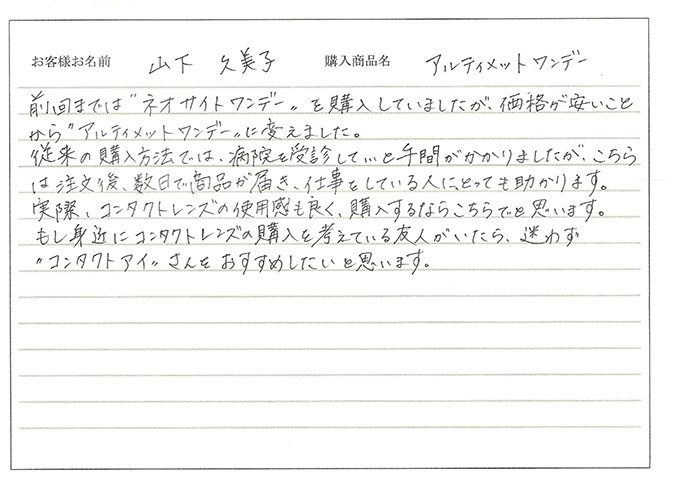 お客様お名前 山下 久美子 購入商品名 アルティメットワンデー
前回までは"ネオサイトワンデー"を購入していましたが、価格が安いこと
から"アルティメットワンデー"に変えました。
従来の購入方法では、病院を受診して…と手間がかかりましたが、こちら
は注文後、数日で商品が届き、仕事をしている人にとっても助かります。
実際、コンタクトレンズの使用感も良く、購入するならこちらでと思います。
もし身近にコンタクトレンズの購入を考えている友人がいたら、迷わず
"コンタクトアイ"さんをおすすめしたいと思います。